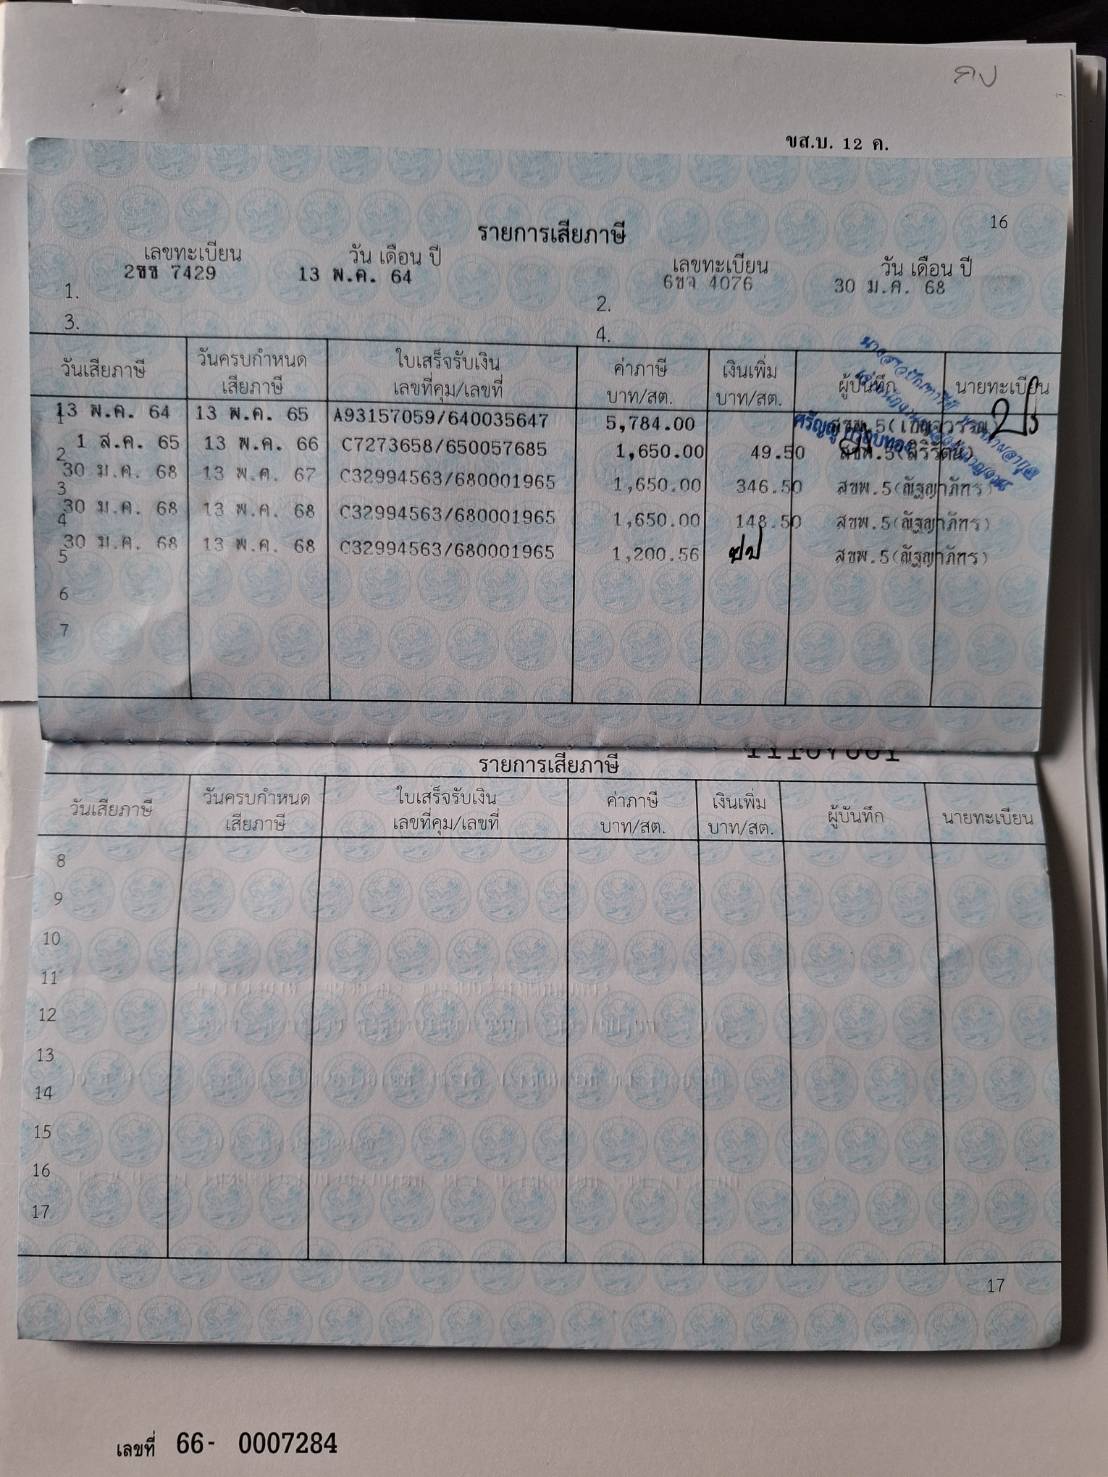 ขส.บ. 12 ค.
16
รายการเสียภาษี
เลขทะเบียน วัน เดือน ปี เลขทะเบียน วัน เดือน ปี
1. 2ขช 7429 13 พ.ค. 64 2. 6ขจ 4076 30 ม.ค. 68
3. 4.
วันเสียภาษี วันครบกำหนด ใบเสร็จรับเงิน ค่าภาษี เงินเพิ่ม ผู้บันทึก นายทะเบียน
เสียภาษี เลขที่คุม/เลขที่ บาท/สต. บาท/สต.
1 13 พ.ค. 64 13 พ.ค. 65 A93157059/640035647 5,784.00 สขพ.5
2 1 ส.ค. 65 13 พ.ค. 66 C7273658/650057685 1,650.00 49.50 สขพ.5(สิริรัตน์)
3 30 ม.ค. 68 13 พ.ค. 67 C32994563/680001965 1,650.00 346.50 สขพ.5(ณัฐญาภัทร)
4 30 ม.ค. 68 13 พ.ค. 68 C32994563/680001965 1,650.00 148.50 สขพ.5(ณัฐญาภัทร)
5 30 ม.ค. 68 13 พ.ค. 68 C32994563/680001965 1,200.56 สขพ.5(ณัฐญาภัทร)
6
7
รายการเสียภาษี
วันเสียภาษี วันครบกำหนด ใบเสร็จรับเงิน ค่าภาษี เงินเพิ่ม ผู้บันทึก นายทะเบียน
เสียภาษี เลขที่คุม/เลขที่ บาท/สต. บาท/สต.
8
9
10
11
12
13
14
15
16
17
17
เลขที่ 66- 0007284